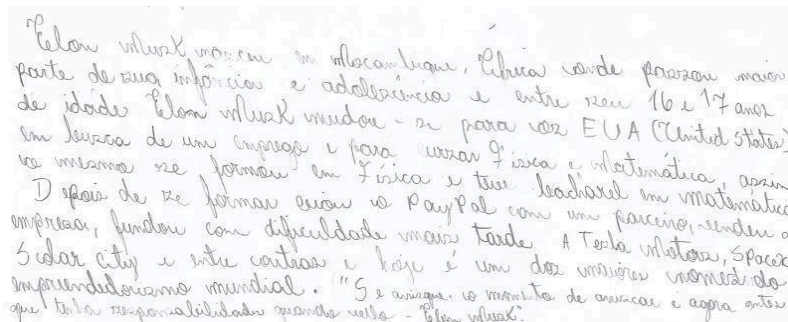 Elon Musk nasceu em Moçambique, África onde passou maior
parte de sua infância e adolescência e entre seu 16 e 17 anos
de idade Elon Musk mudou-se para os EUA (United States)
em busca de um emprego e para cursar Física e Matemática, assim
o mesmo se formou em Física e teve bacharel em matemática
Depois de se formar criou o PayPal com um parceiro, vendeu a
empresa, fundou com dificuldade mais tarde A Tesla Motors, SpaceX
Solar City e entre outras e hoje é um dos maiores nomes do
empreendedorismo mundial. "Se arrisque, o momento de arriscar é agora antes
que tenha responsabilidades quando velho - Elon Musk".